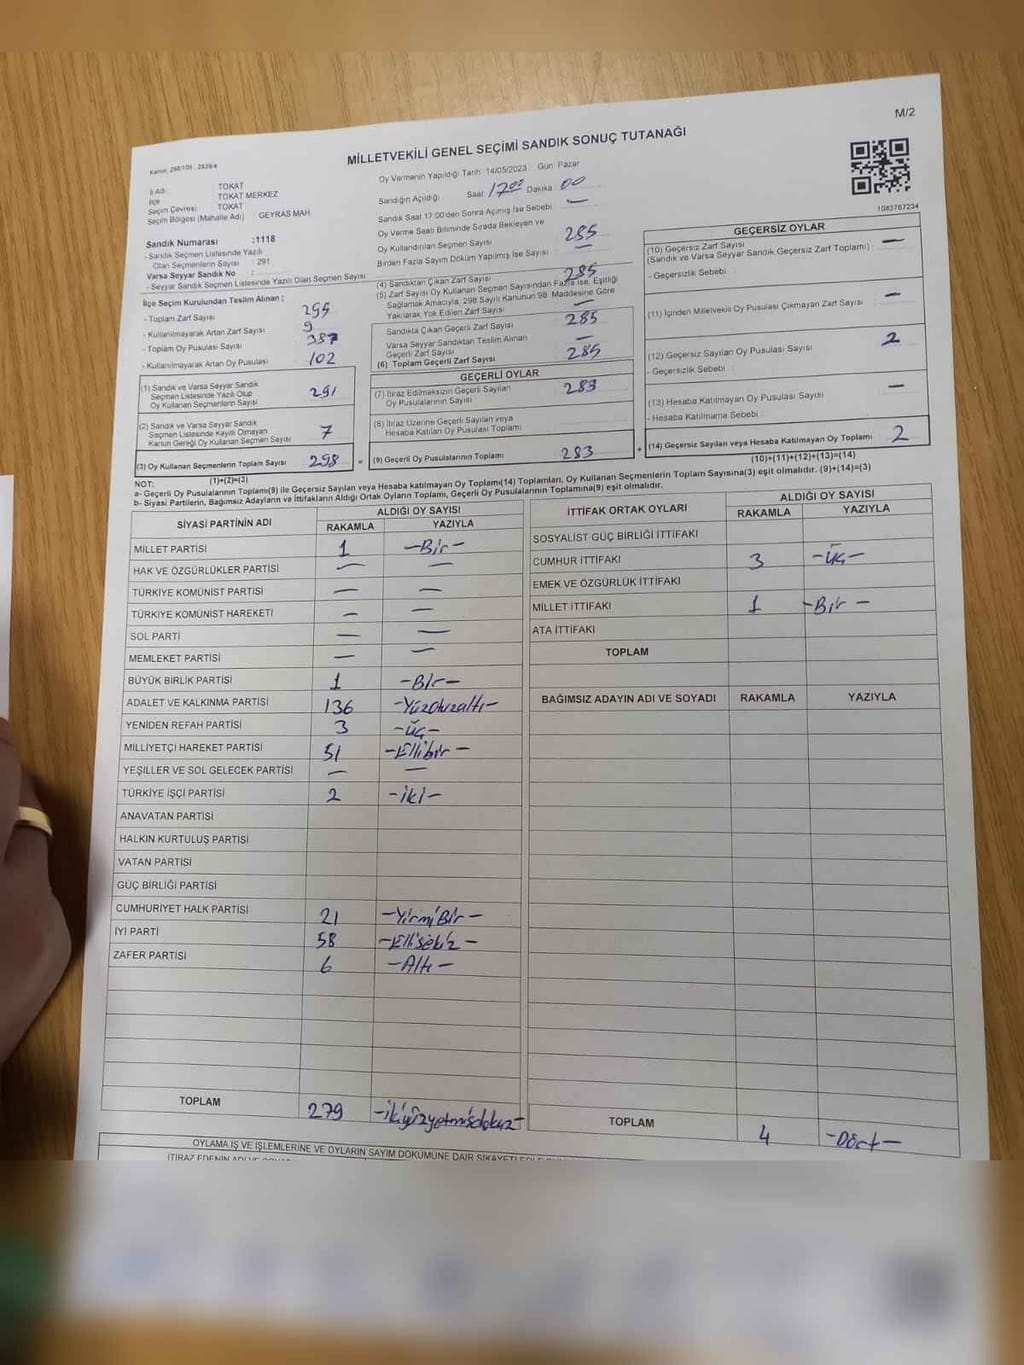 M/2
MİLLETVEKİLİ GENEL SEÇİMİ SANDIK SONUÇ TUTANAĞI
Kanun: 298/105 , 2839/4
İl Adı TOKAT
İlçe TOKAT MERKEZ
Seçim Çevresi TOKAT
Seçim Bölgesi (Mahalle Adı) GEYRAS MAH.
Sandık Numarası :1118
- Sandık Seçmen Listesinde Yazılı
Olan Seçmenlerin Sayısı : 291
Varsa Seyyar Sandık No :
- Seyyar Sandık Seçmen Listesinde Yazılı Olan Seçmen Sayısı
İlçe Seçim Kurulundan Teslim Alınan :
- Toplam Zarf Sayısı 295
- Kullanılmayarak Artan Zarf Sayısı: 9
- Toplam Oy Pusulası Sayısı 387
- Kullanılmayarak Artan Oy Pusulası 102
(1) Sandık ve Varsa Seyyar Sandık
Seçmen Listesinde Yazılı Olup
Oy Kullanan Seçmenlerin Sayısı 291
(2) Sandık ve Varsa Seyyar Sandık
Seçmen Listesinde Kayıtlı Olmayan
Kanun Gereği Oy Kullanan Seçmen Sayısı 7
(3) Oy Kullanan Seçmenlerin Toplam Sayısı 298 =
(1)+(2)=(3)
Oy Vermenin Yapıldığı Tarih 14/05/2023 Gün Pazar
Sandığın Açıldığı Saat 17.00 Dakika 00
Sandık Saat 17:00'den Sonra Açımış İse Sebebi —
Oy Verme Saati Bitiminde Sırada Bekleyen ve
Oy Kullandırılan Seçmen Sayısı 285
Birden Fazla Sayım Döküm Yapılmış İse Sayısı —
(4) Sandıktan Çıkan Zarf Sayısı 285
(5) Zarf Sayısı Oy Kullanan Seçmen Sayısından Fazla ise, Eşitliği
Sağlamak Amacıyla, 298 Sayılı Kanunun 98. Maddesine Göre
Yakılarak Yok Edilen Zarf Sayısı —
Sandıkta Çıkan Geçerli Zarf Sayısı 285
Varsa Seyyar Sandıktan Teslim Alınan
Geçerli Zarf Sayısı —
(6) Toplam Geçerli Zarf Sayısı 285
GEÇERLİ OYLAR
(7) İtiraz Edilmeksizin Geçerli Sayılan
Oy Pusulalarının Sayısı 283
(8) İtiraz Üzerine Geçerli Sayılan veya
Hesaba Katılan Oy Pusulası Toplamı
(9) Geçerli Oy Pusulalarının Toplamı 283 +
1083767234
GEÇERSİZ OYLAR
(10) Geçersiz Zarf Sayısı —
(Sandık ve Varsa Seyyar Sandık Geçersiz Zarf Toplamı)
- Geçersizlik Sebebi
(11) İçinden Milletvekili Oy Pusulası Çıkmayan Zarf Sayısı —
(12) Geçersiz Sayılan Oy Pusulası Sayısı 2
- Geçersizlik Sebebi
(13) Hesaba Katılmayan Oy Pusulası Sayısı —
- Hesaba Katılmama Sebebi
(14) Geçersiz Sayılan veya Hesaba Katılmayan Oy Toplamı 2
(10)+(11)+(12)+(13)=(14)
NOT:
a- Geçerli Oy Pusulalarının Toplamı(9) ile Geçersiz Sayılan veya Hesaba katılmayan Oy Toplamı(14) Toplamları, Oy Kullanan Seçmenlerin Toplam Sayısına(3) eşit olmalıdır. (9)+(14)=(3)
b- Siyasi Partilerin, Bağımsız Adayların ve İttifakların Aldığı Ortak Oyların Toplamı, Geçerli Oy Pusulalarının Toplamına(9) eşit olmalıdır.
SİYASİ PARTİNİN ADI ALDIĞI OY SAYISI
RAKAMLA YAZIYLA
MİLLET PARTİSİ 1 -Bir-
HAK VE ÖZGÜRLÜKLER PARTİSİ — —
TÜRKİYE KOMÜNİST PARTİSİ — —
TÜRKİYE KOMÜNİST HAREKETİ — —
SOL PARTİ — —
MEMLEKET PARTİSİ — —
BÜYÜK BİRLİK PARTİSİ 1 -Bir-
ADALET VE KALKINMA PARTİSİ 136 -Yüzotuzaltı-
YENİDEN REFAH PARTİSİ 3 -üç-
MİLLİYETÇİ HAREKET PARTİSİ 51 -Ellibir-
YEŞİLLER VE SOL GELECEK PARTİSİ — —
TÜRKİYE İŞÇİ PARTİSİ 2 -iki-
ANAVATAN PARTİSİ
HALKIN KURTULUŞ PARTİSİ
VATAN PARTİSİ
GÜÇ BİRLİĞİ PARTİSİ
CUMHURİYET HALK PARTİSİ 21 -YirmiBir-
İYİ PARTİ 58 -Ellisekiz-
ZAFER PARTİSİ 6 -Altı-
TOPLAM 279 -ikiyüzyetmişdokuz-
İTTİFAK ORTAK OYLARI ALDIĞI OY SAYISI
RAKAMLA YAZIYLA
SOSYALİST GÜÇ BİRLİĞİ İTTİFAKI
CUMHUR İTTİFAKI 3 -üç-
EMEK VE ÖZGÜRLÜK İTTİFAKI
MİLLET İTTİFAKI 1 -Bir-
ATA İTTİFAKI
TOPLAM
BAĞIMSIZ ADAYIN ADI VE SOYADI RAKAMLA YAZIYLA
TOPLAM 4 -Dört-
OYLAMA İŞ VE İŞLEMLERİNE VE OYLARIN SAYIM DÖKÜMÜNE DAİR ŞİKAYET
İTİRAZ EDENİN ADI